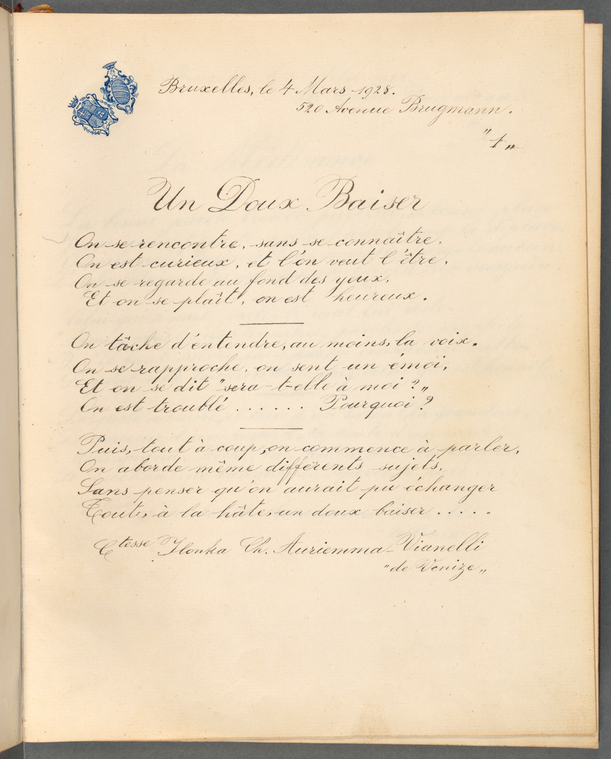 Bruxelles, le 4 Mars 1928.
520 Avenue Brugmann.
"1„
Un Doux Baiser
On se rencontre, sans se connaître,
On est curieux, et l'on veut l'être,
On se regarde au fond des yeux,
Et on se plaît, on est heureux.
On tâche d'entendre, au moins, la voix.
On se rapproche, on sent un émoi,
Et on se dit "sera-t-elle à moi?„
On est troublé ...... Pourquoi?
Puis, tout à coup, on commence à parler,
On aborde même différents sujets,
Sans penser qu'on aurait pu échanger
Toute, à la hâte, un doux baiser .....
Ctesse Ilonka Ch. Auriemma-Vianelli
"de Venize„